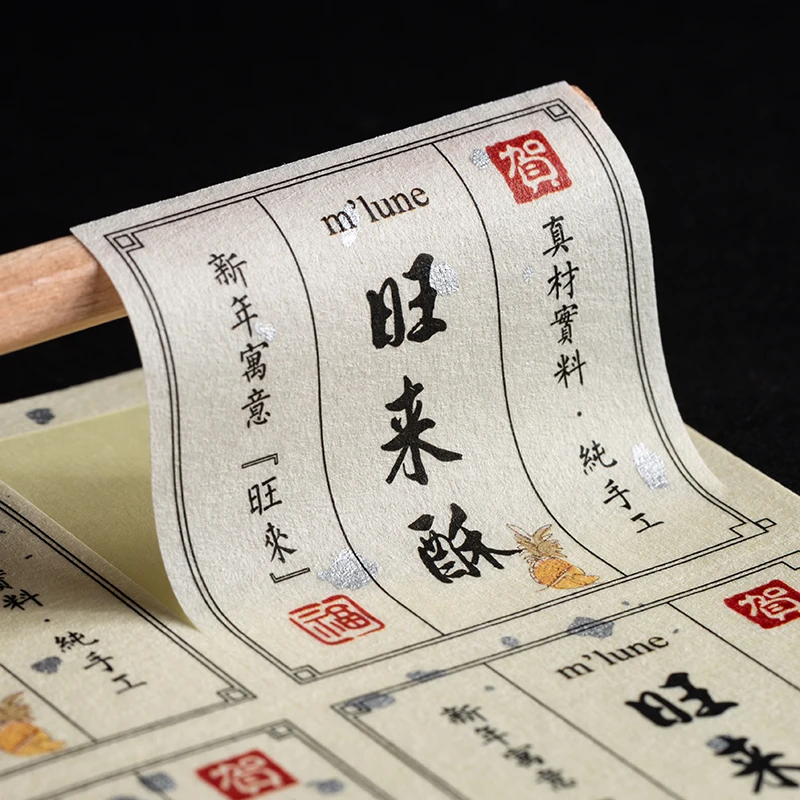 賀
真材實料·純手工
m'lune
旺来酥
新年寓意『旺來』
福
實料·純手工
賀
m'lune
旺来
新年寓意
賀